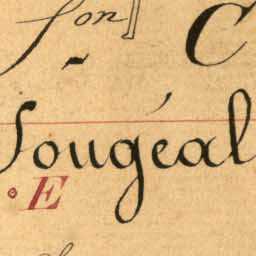 son
C
Sougéal
E